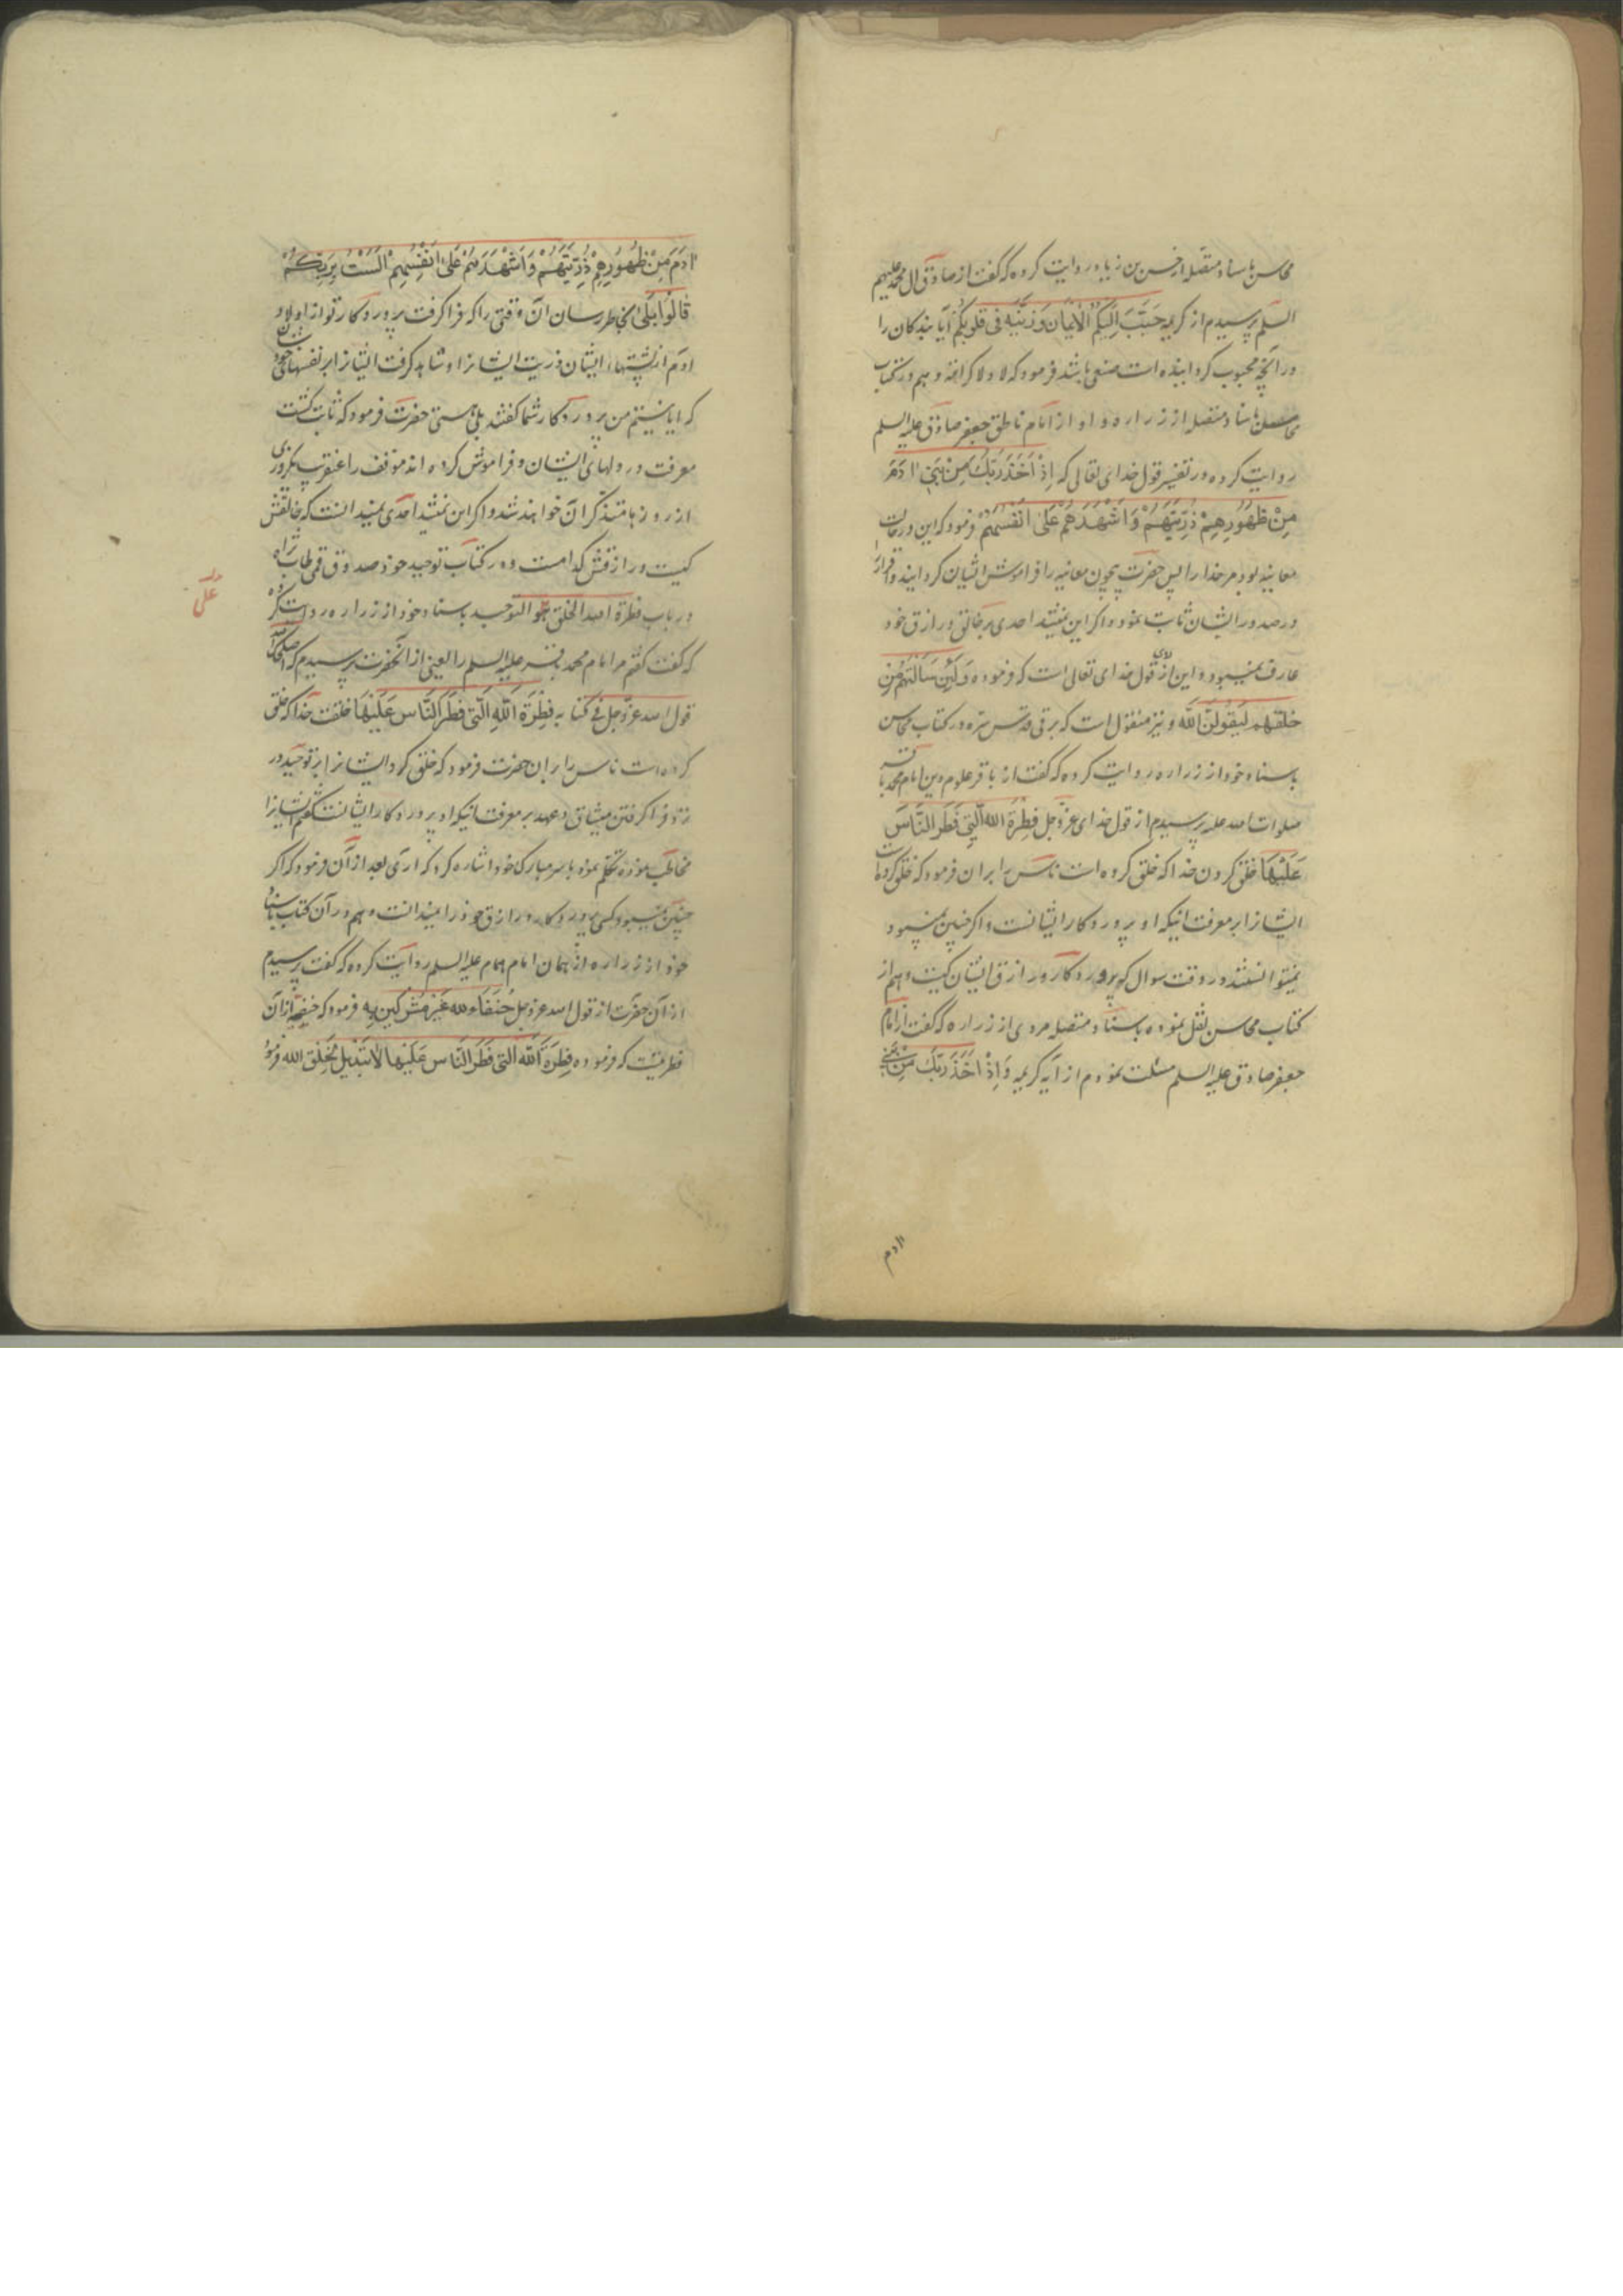 محاسن باسناد متصله از حسن بن زیاد روایت کرده که گفت از صادق ال محمد علیهم
السلم پرسیدم از کریمه حَبَّبَ اِلَیکُمُ الاْیمٰانَ وَ زَیَّنَهُ فی قلوبکُم آیا بندکان را
در آنچه محبوب کردانیده است صنعی باشد فرمود که لا ولا کرامة و هم در کتاب
محاسن باسناد متصله از زراره و او از امام ناطق جعفر صادق علیه السلم
روایت کرده در تفسیر قول خدای تعالی که اِذْ اَخَذَ رَبُّکَ مِنْ بَنی اٰدَمَ
مِنْ ظُهُورِهِمْ ذُرِّیَّتَهُمْ وَ اَشْهَدَهُمْ عَلیٰ اَنْفُسِهِمْ فرمود که این در حالت
معاینه بود مر خدا را پس حضرت بیچون معاینه را فراموش ایشان کردانید و اقرار
در صدور ایشان ثابت نمود و اکر این نمیشد احدی بر خالق و رازق خود
عارف نمیبود و این از روی قول خدای تعالی است که فرموده وَ لَئِنْ سَاَلْتَهُمْ مَنْ
خلقهم لَیَقُولُنَّ اللّٰه و نیز منقول است که برقی قدس سره در کتاب محاسن
باسناد خود از زراره روایت کرده که گفت از باقر علوم دین امام محمد باقر
صلوات الله علیه پرسیدم از قول خدای عزّ وجل فِطْرَةَ الله الَّتی فَطَرَ النَّاسَ
عَلَیْهٰا خلق کردن خدا که خلق کرده است ناس را بران فرمود که خلق کرده است
ایشانرا بر معرفت اینکه او پروردکار ایشانست و اکر چنین نمیبود
نمیتوانستند در وقت سوال که پروردکار و رازق ایشان کیست و هم از
کتاب محاسن نقل نموده باسناد متصله مروی از زراره که گفت از امام
جعفر صادق علیه السلم مسئلت نمودم از آیه کریمه وَ اِذْ اَخَذَ رَبُّکَ مِنْ بَنی
اٰدم
اٰدَمَ مِنْ ظُهُورِهِمْ ذُرِّیَّتَهُمْ وَ اَشْهَدَهُمْ عَلیٰ اَنْفُسِهِمْ اَلَسْتُ بِرَبِّکُمْ
قٰالُوا بَلیٰ بخاطر رسان آن وقتی را که فرا کرفت پروردکار تو از اولاد
ادم از پشتهاء ایشان ذریت ایشانرا و شاهد کرفت ایشانرا بر نفسهای خود
که ایا نیستم من پروردکار شما کفتند بلی هستی حضرت فرمود که ثابت کشت
معرفت در دلهای ایشان و فراموش کرده اند موقف را عنقریب بروزی
از روزها متذکر ان خواهند شد و اکر این نمیشد احدی نمیدانست که خالقش
کیست و رازقش کدامست و در کتاب توحید خود صدوق قمی طاب ثراه
در باب فطرة الله الخلق علی التوحید باسناد خود از زراره روایت کرده
که کفت کفتم مر امام محمد باقر علیه السلم را یعنی از آنحضرت پرسیدم که اصلحک الله
قول الله عزّ وجل فی کتابه فِطْرَةَ اللّٰهِ الَّتی فَطَرَ النّٰاسَ عَلَیْهٰا خلقت خدا که خلق
کرده است ناس را بران حضرت فرمود که خلق کرد ایشانرا بر توحید در
نزد فرا کرفتن میثاق و عهد بر معرفت اینکه او پروردکار ایشانست کفتم ایشانرا
مخاطب نموده تکلم نمود با سر مبارک خود اشاره کرد که اری بعد از آن فرمود که اکر
چنین نمیبود کسی پروردکار و رازق خود را نمیدانست و هم در آن کتاب باسناد
خود از زراره از همان امام همام علیه السلم روایت کرده که کفت پرسیدم
از آن حضرت از قول الله عز وجل حُنَفٰاءَ لِلّٰه غَیْرَ مُشْرِکینَ بِهِ فرمود که حنیفیه از آن
فطریست که فرموده فِطْرَةَ اللّٰه الَّتی فَطَرَ النّٰاسَ عَلَیْهٰا لاٰ تَبْدیلَ لِخَلْقِ الله فرمود
علی